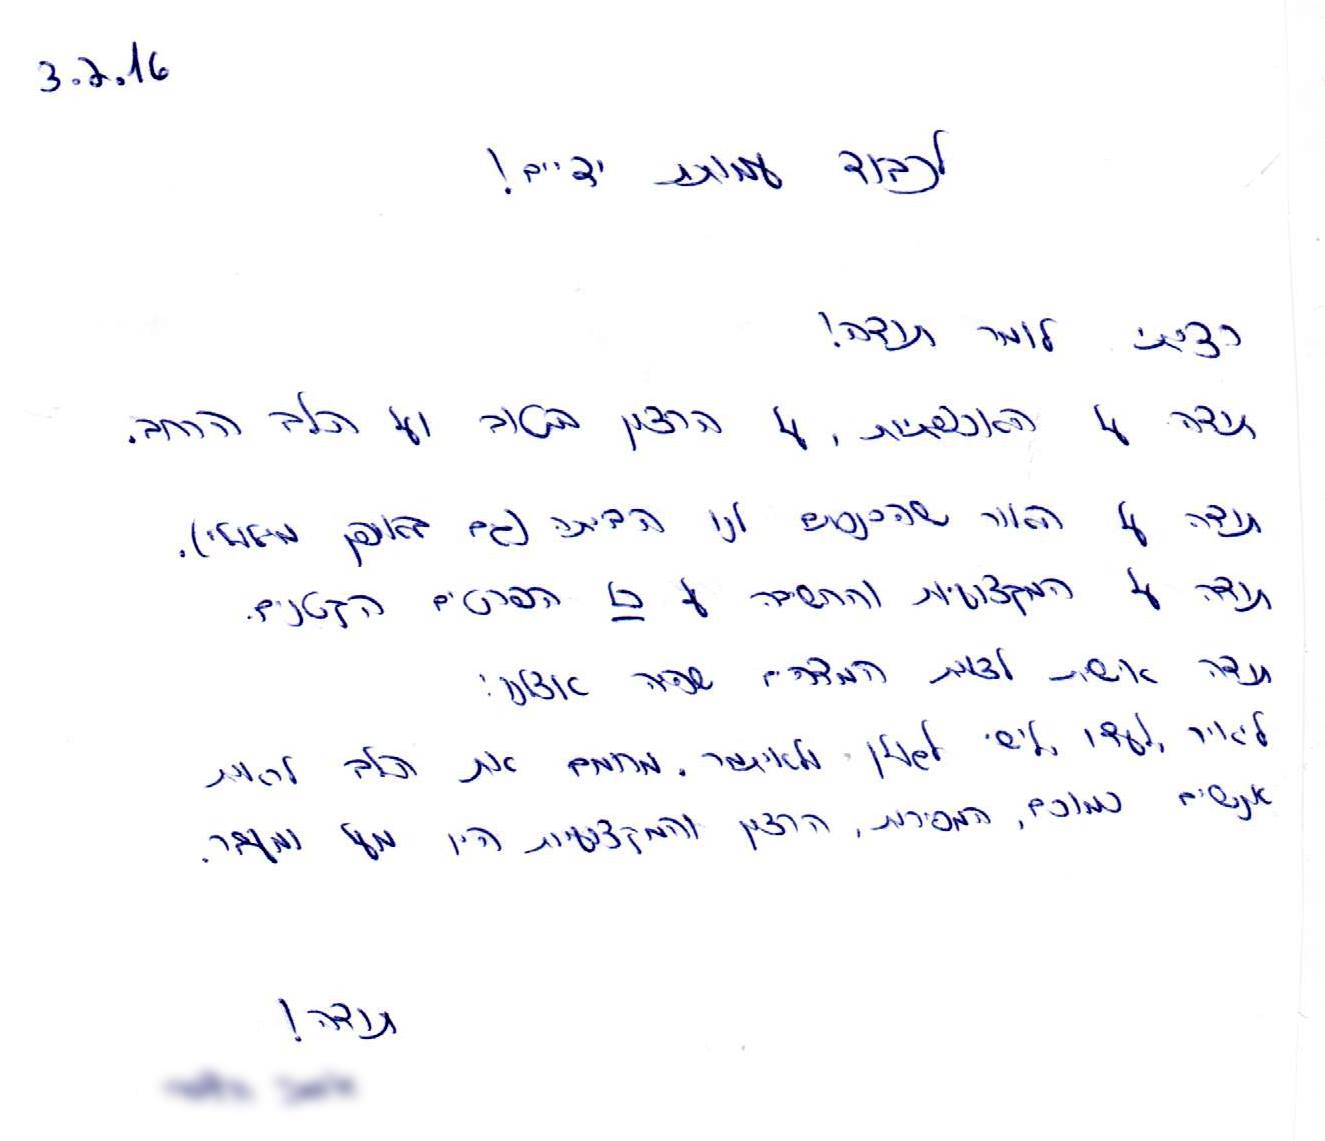 3.7.16
לכבוד עמותת ידיים!
רציתי לומר תודה!
תודה על האכפתיות, על הרצון הטוב ועל הלב הרחב.
תודה על האור שהכנסתם לנו הביתה (גם באופן מילולי).
תודה על המקצועיות והחשיבה על כל הפרטים הקטנים.
תודה אישית לצוות המדהים שהיה אצלנו:
ליאיר, לעדו, לישי ולאיתמר. מחמם את הלב לראות
אנשים כמוכם, המסירות, הרצון והמקצועיות היו מעל ומעבר.
תודה!